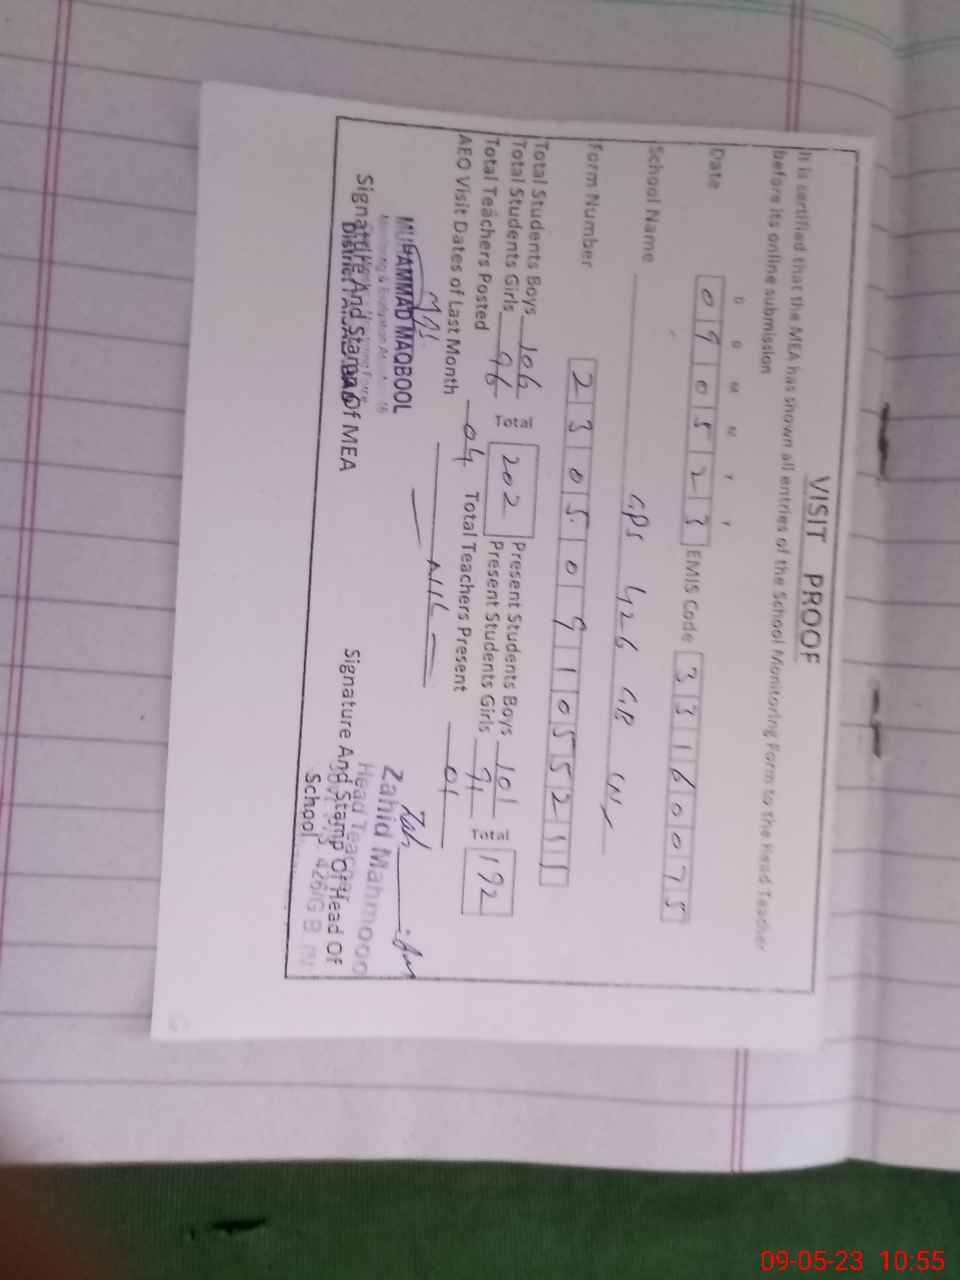 VISIT PROOF
It is certified that the MEA has shown all entries of the School Monitoring Form to the Head Teacher
before its online submission
D D M M Y Y
Date 0 9 0 5 2 3 EMIS Code 3 3 1 6 0 0 7 5
School Name GPS 426 GB (N)
Form Number 2 3 0 5 0 9 1 0 5 5 2 1 1
Total Students Boys 106 Total 202 Present Students Boys 101 Total 192
Total Students Girls 96 Present Students Girls 91
Total Teachers Posted 04 Total Teachers Present 01
AEO Visit Dates of Last Month — NIL —
MUHAMMAD MAQBOOL
Monitoring & Evaluation
Signature And Stamp Of MEA
District FAISALABAD
Zahid Mahmood
Head Teacher
Signature And Stamp Of Head Of
School
426/G B (N)
09-05-23 10:55